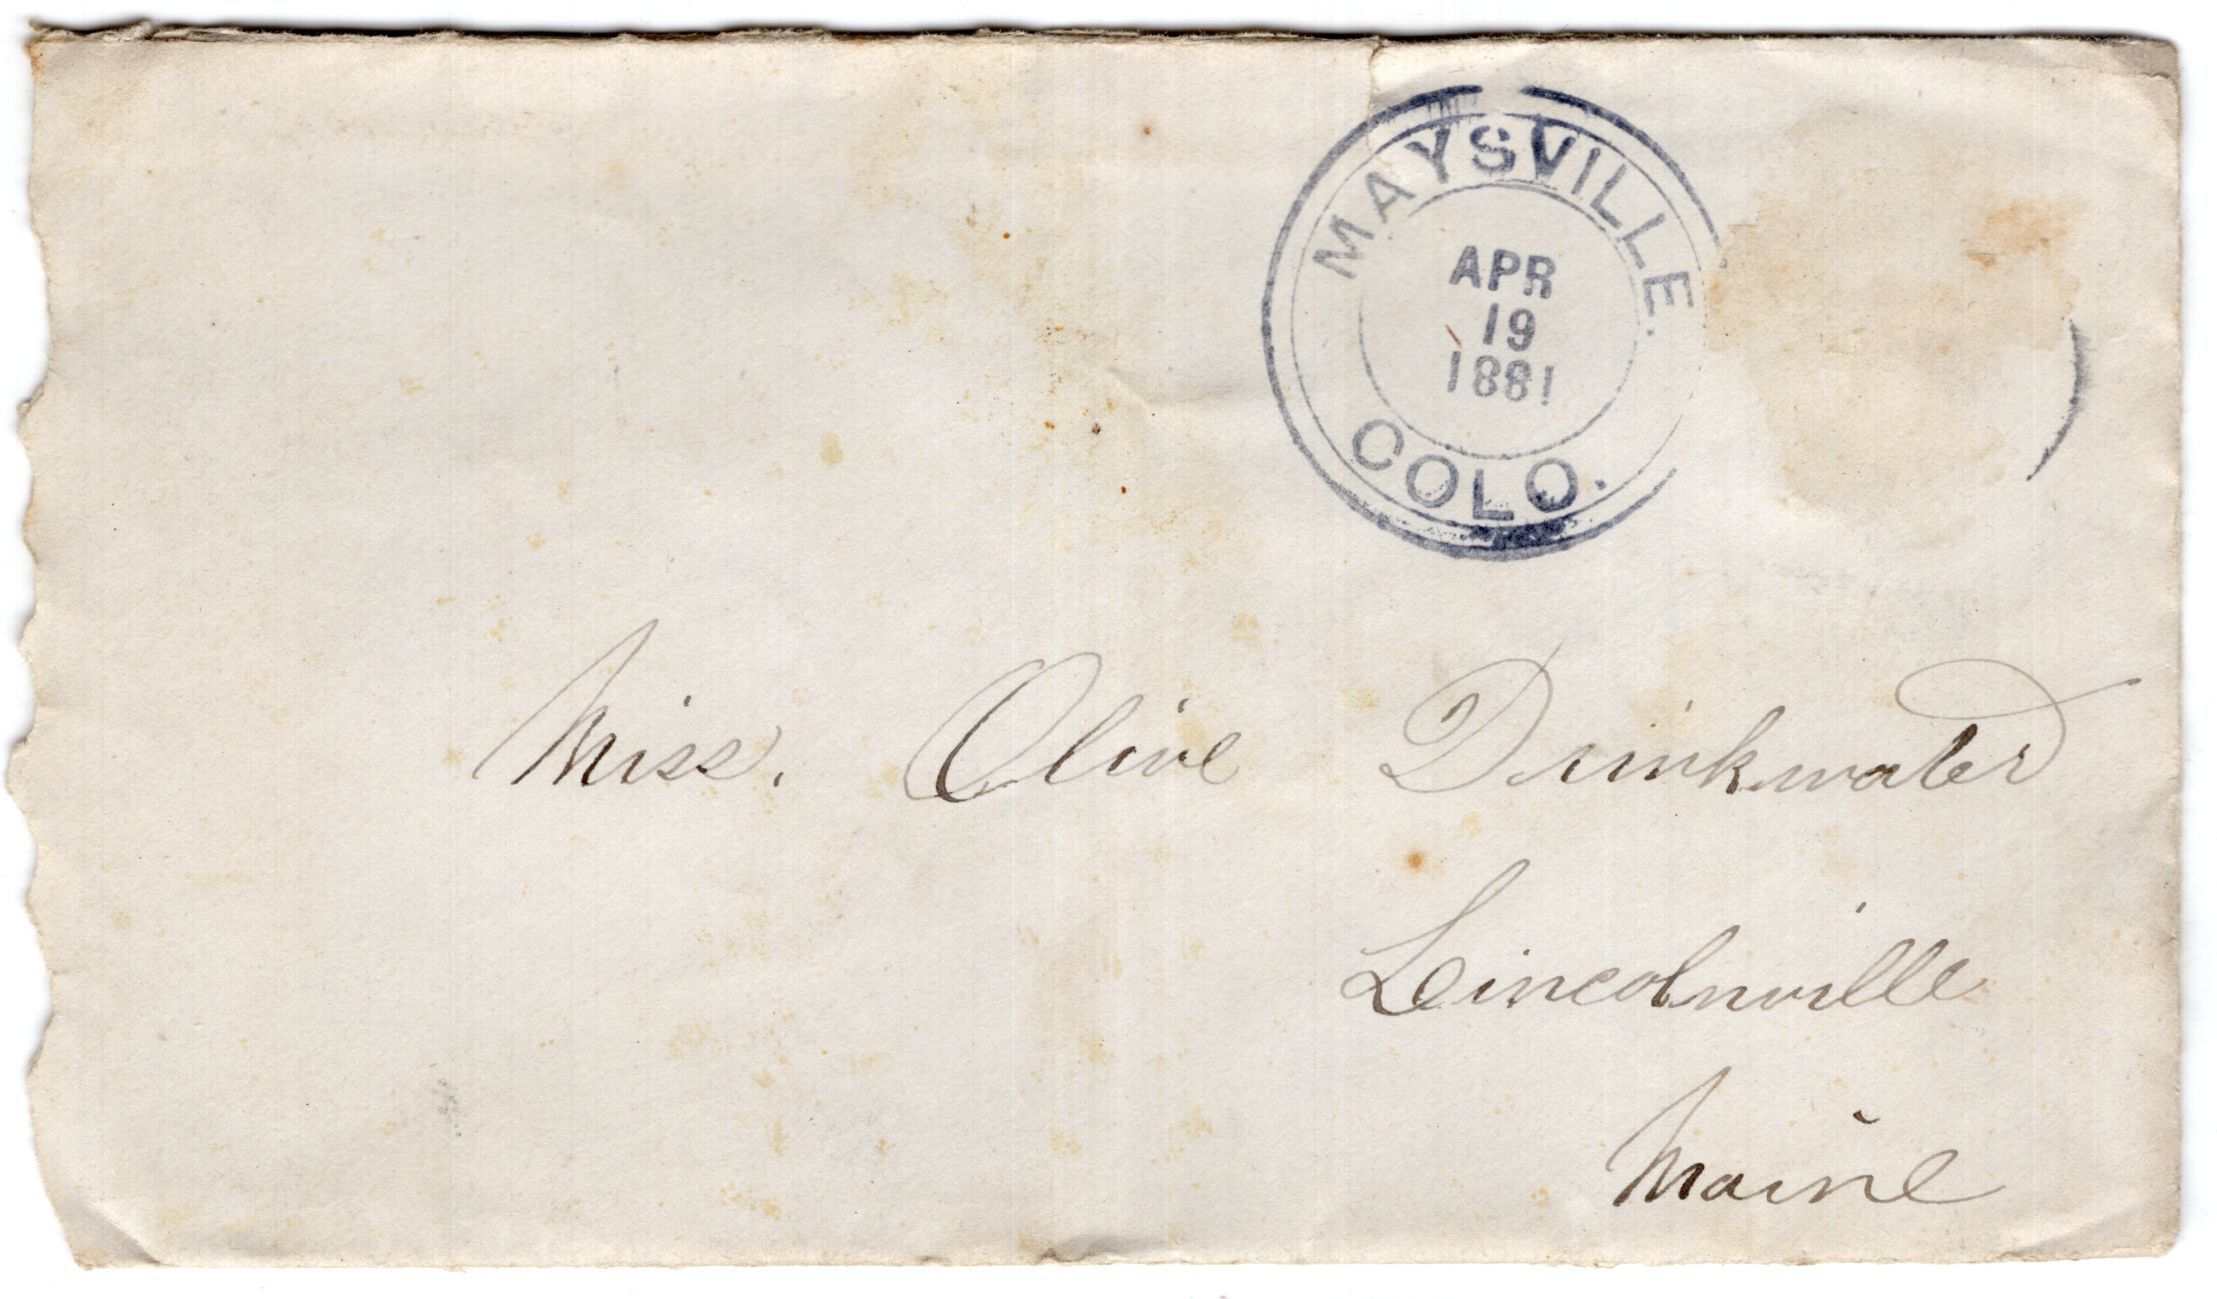 MAYSVILLE.
APR
19
1881
COLO.
Miss. Olive Drinkwater
Lincolnville
Maine